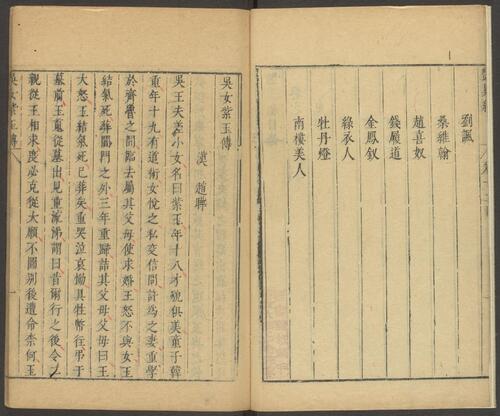 劉諷
桑維翰
趙喜奴
錢履道
金鳳釵
綠衣人
牡丹燈
南樓美人
吳女紫玉傳
漢 趙曄
吳王夫差小女名曰紫玉年十八才貌俱美童子韓
重年十九有道術女悅之私交信問許為之妻重學
於齊魯之間臨去屬其父母使求婚王怒不與女玉
結氣死葬閶門之外三年重歸詰其父母父母曰王
大怒玉結氣死已葬矣重哭泣哀慟具牲幣往弔于
墓前玉䰟從墓出見重流涕謂曰昔爾行之後令二
親從王相求度必克從大願不圖別後遭命柰何玉
吳女紫玉傳